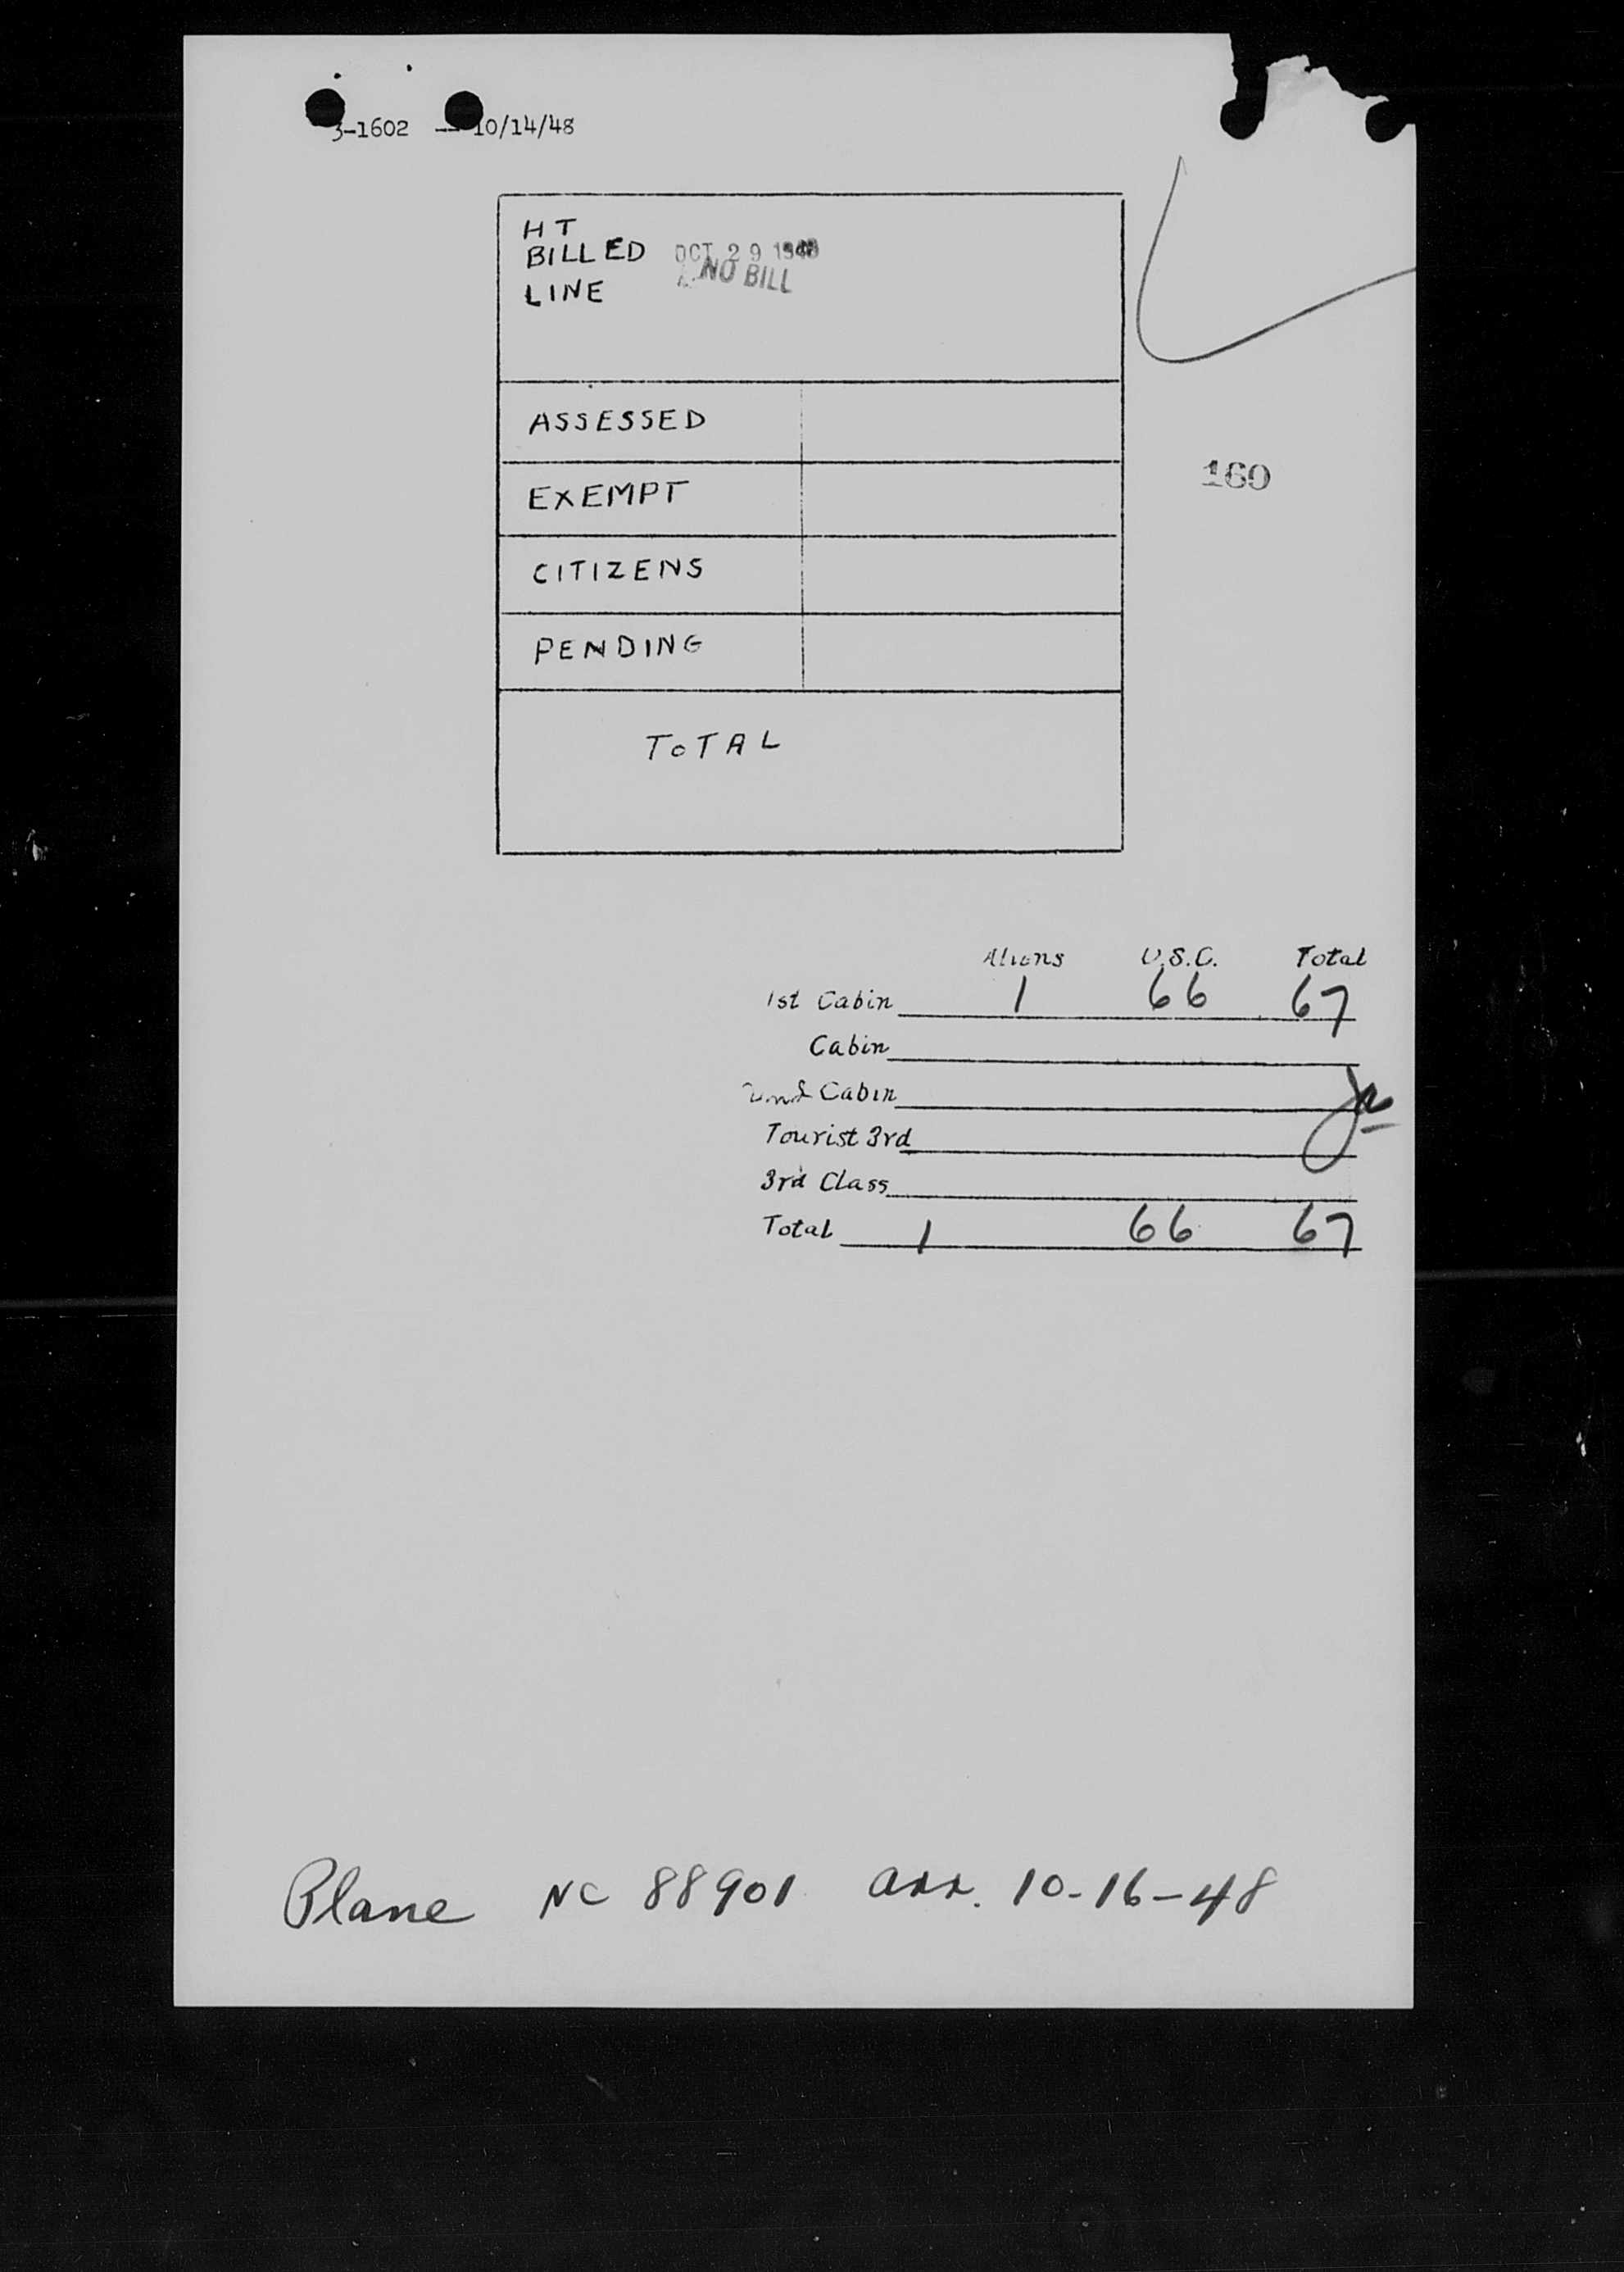 3-1602 -- 10/14/48
HT
BILLED OCT 29 1948
LINE NO BILL
ASSESSED
160
EXEMPT
CITIZENS
PENDING
TOTAL
Aliens U.S.C. Total
1st Cabin 1 66 67
Cabin
Cabin
Tourist 3rd
3rd Class
Total 1 66 67
Plane NC 88901 arr. 10-16-48